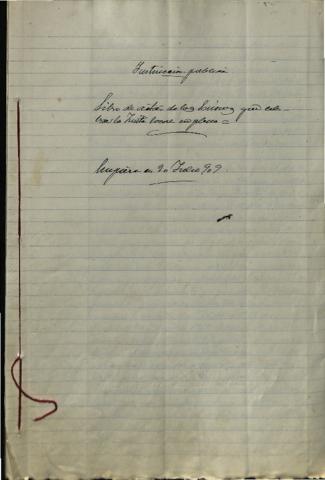 Instrucción publica
Libro de actas de las sesiones que cele-
bra la Junta sobre
Empieza en 20 Julio 909.